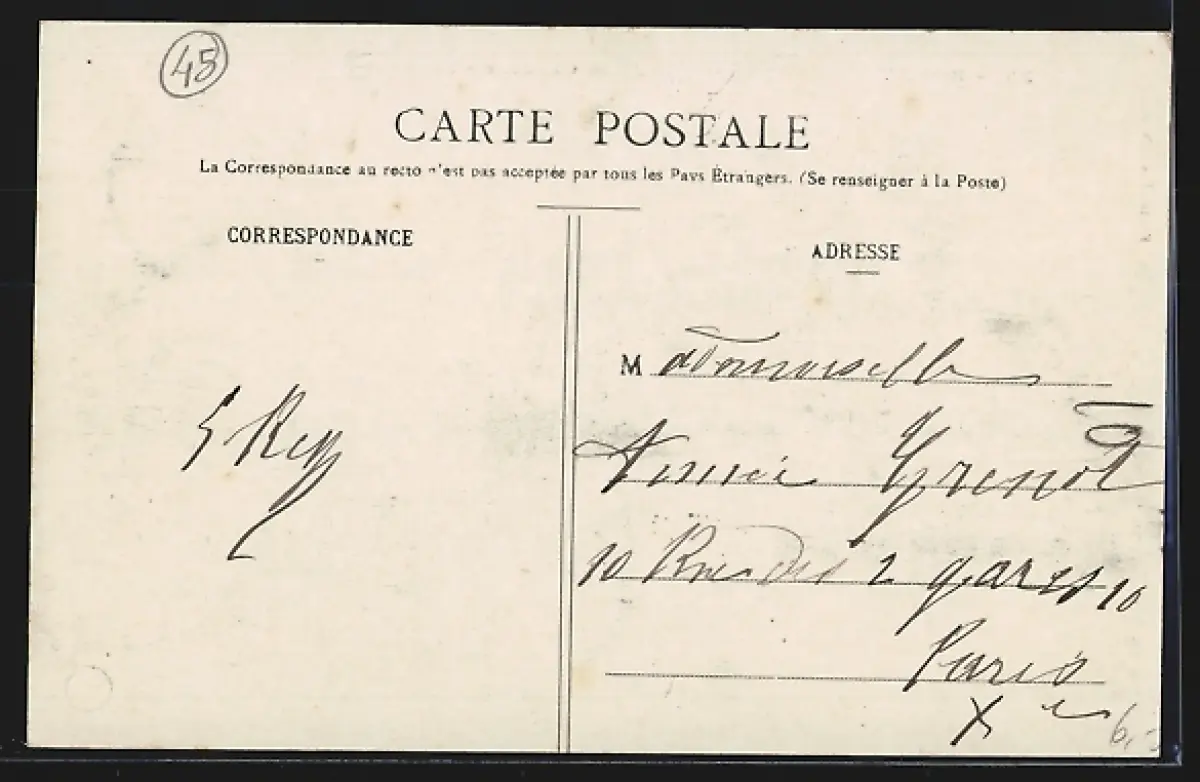 45
CARTE POSTALE
La Correspondance au recto n'est pas acceptée par tous les Pays Étrangers. (Se renseigner à la Poste)
CORRESPONDANCE
ADRESSE
Mademoiselle
Grenot
10 Rue des 2 gares 10
Paris
Xe
6,-